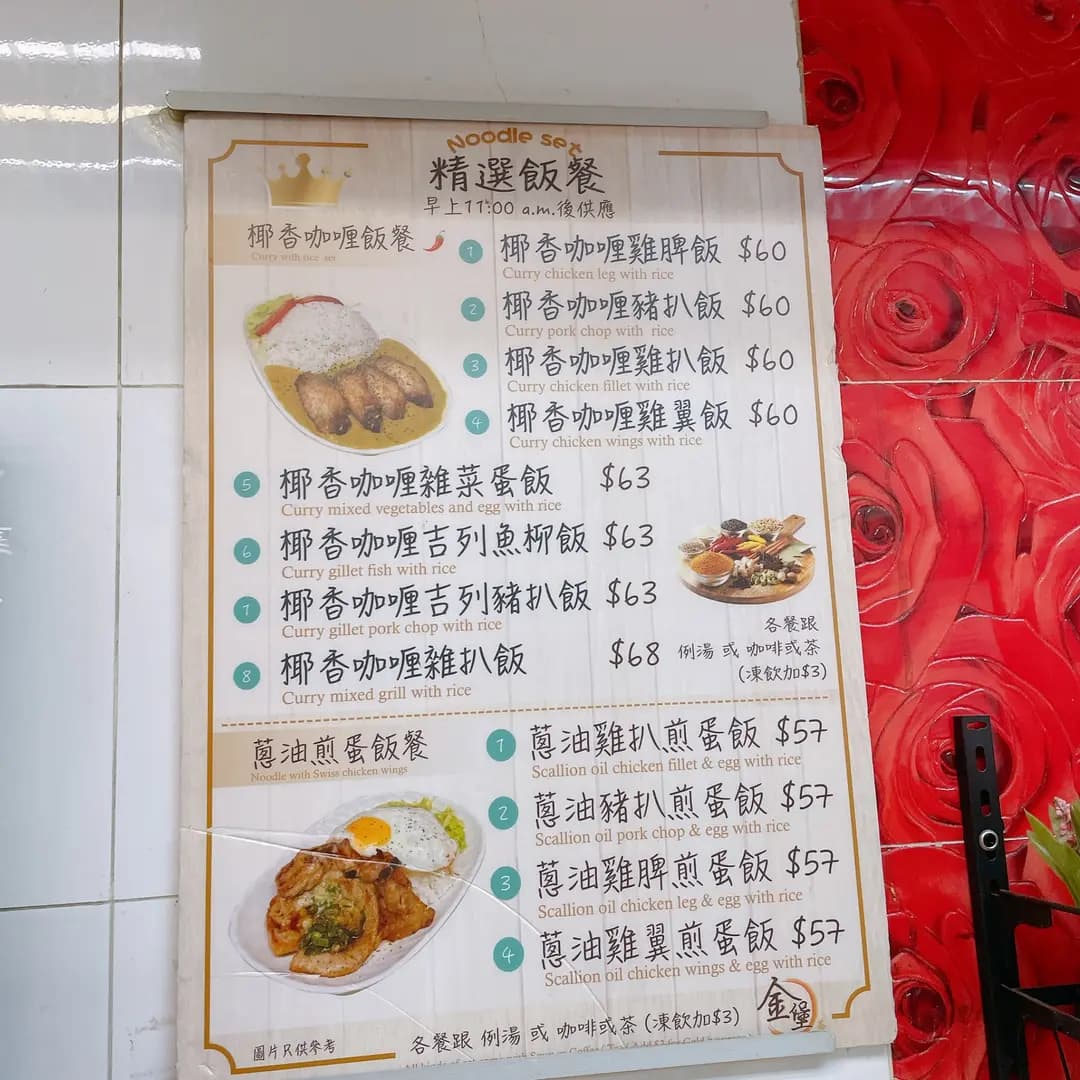 Noodle set
精選飯餐
早上11:00 a.m.後供應
椰香咖喱飯餐
Curry with rice set
1 椰香咖喱雞脾飯 $60
Curry chicken leg with rice
2 椰香咖喱豬扒飯 $60
Curry pork chop with rice
3 椰香咖喱雞扒飯 $60
Curry chicken fillet with rice
4 椰香咖喱雞翼飯 $60
Curry chicken wings with rice
5 椰香咖喱雜菜蛋飯 $63
Curry mixed vegetables and egg with rice
6 椰香咖喱吉列魚柳飯 $63
Curry gillet fish with rice
7 椰香咖喱吉列豬扒飯 $63
Curry gillet pork chop with rice
8 椰香咖喱雜扒飯 $68
Curry mixed grill with rice
各餐跟
例湯 或 咖啡或茶
(凍飲加$3)
蔥油煎蛋飯餐
Noodle with Swiss chicken wings
1 蔥油雞扒煎蛋飯 $57
Scallion oil chicken fillet & egg with rice
2 蔥油豬扒煎蛋飯 $57
Scallion oil pork chop & egg with rice
3 蔥油雞脾煎蛋飯 $57
Scallion oil chicken leg & egg with rice
4 蔥油雞翼煎蛋飯 $57
Scallion oil chicken wings & egg with rice
金堡
圖片只供參考
各餐跟 例湯 或 咖啡或茶 (凍飲加$3)